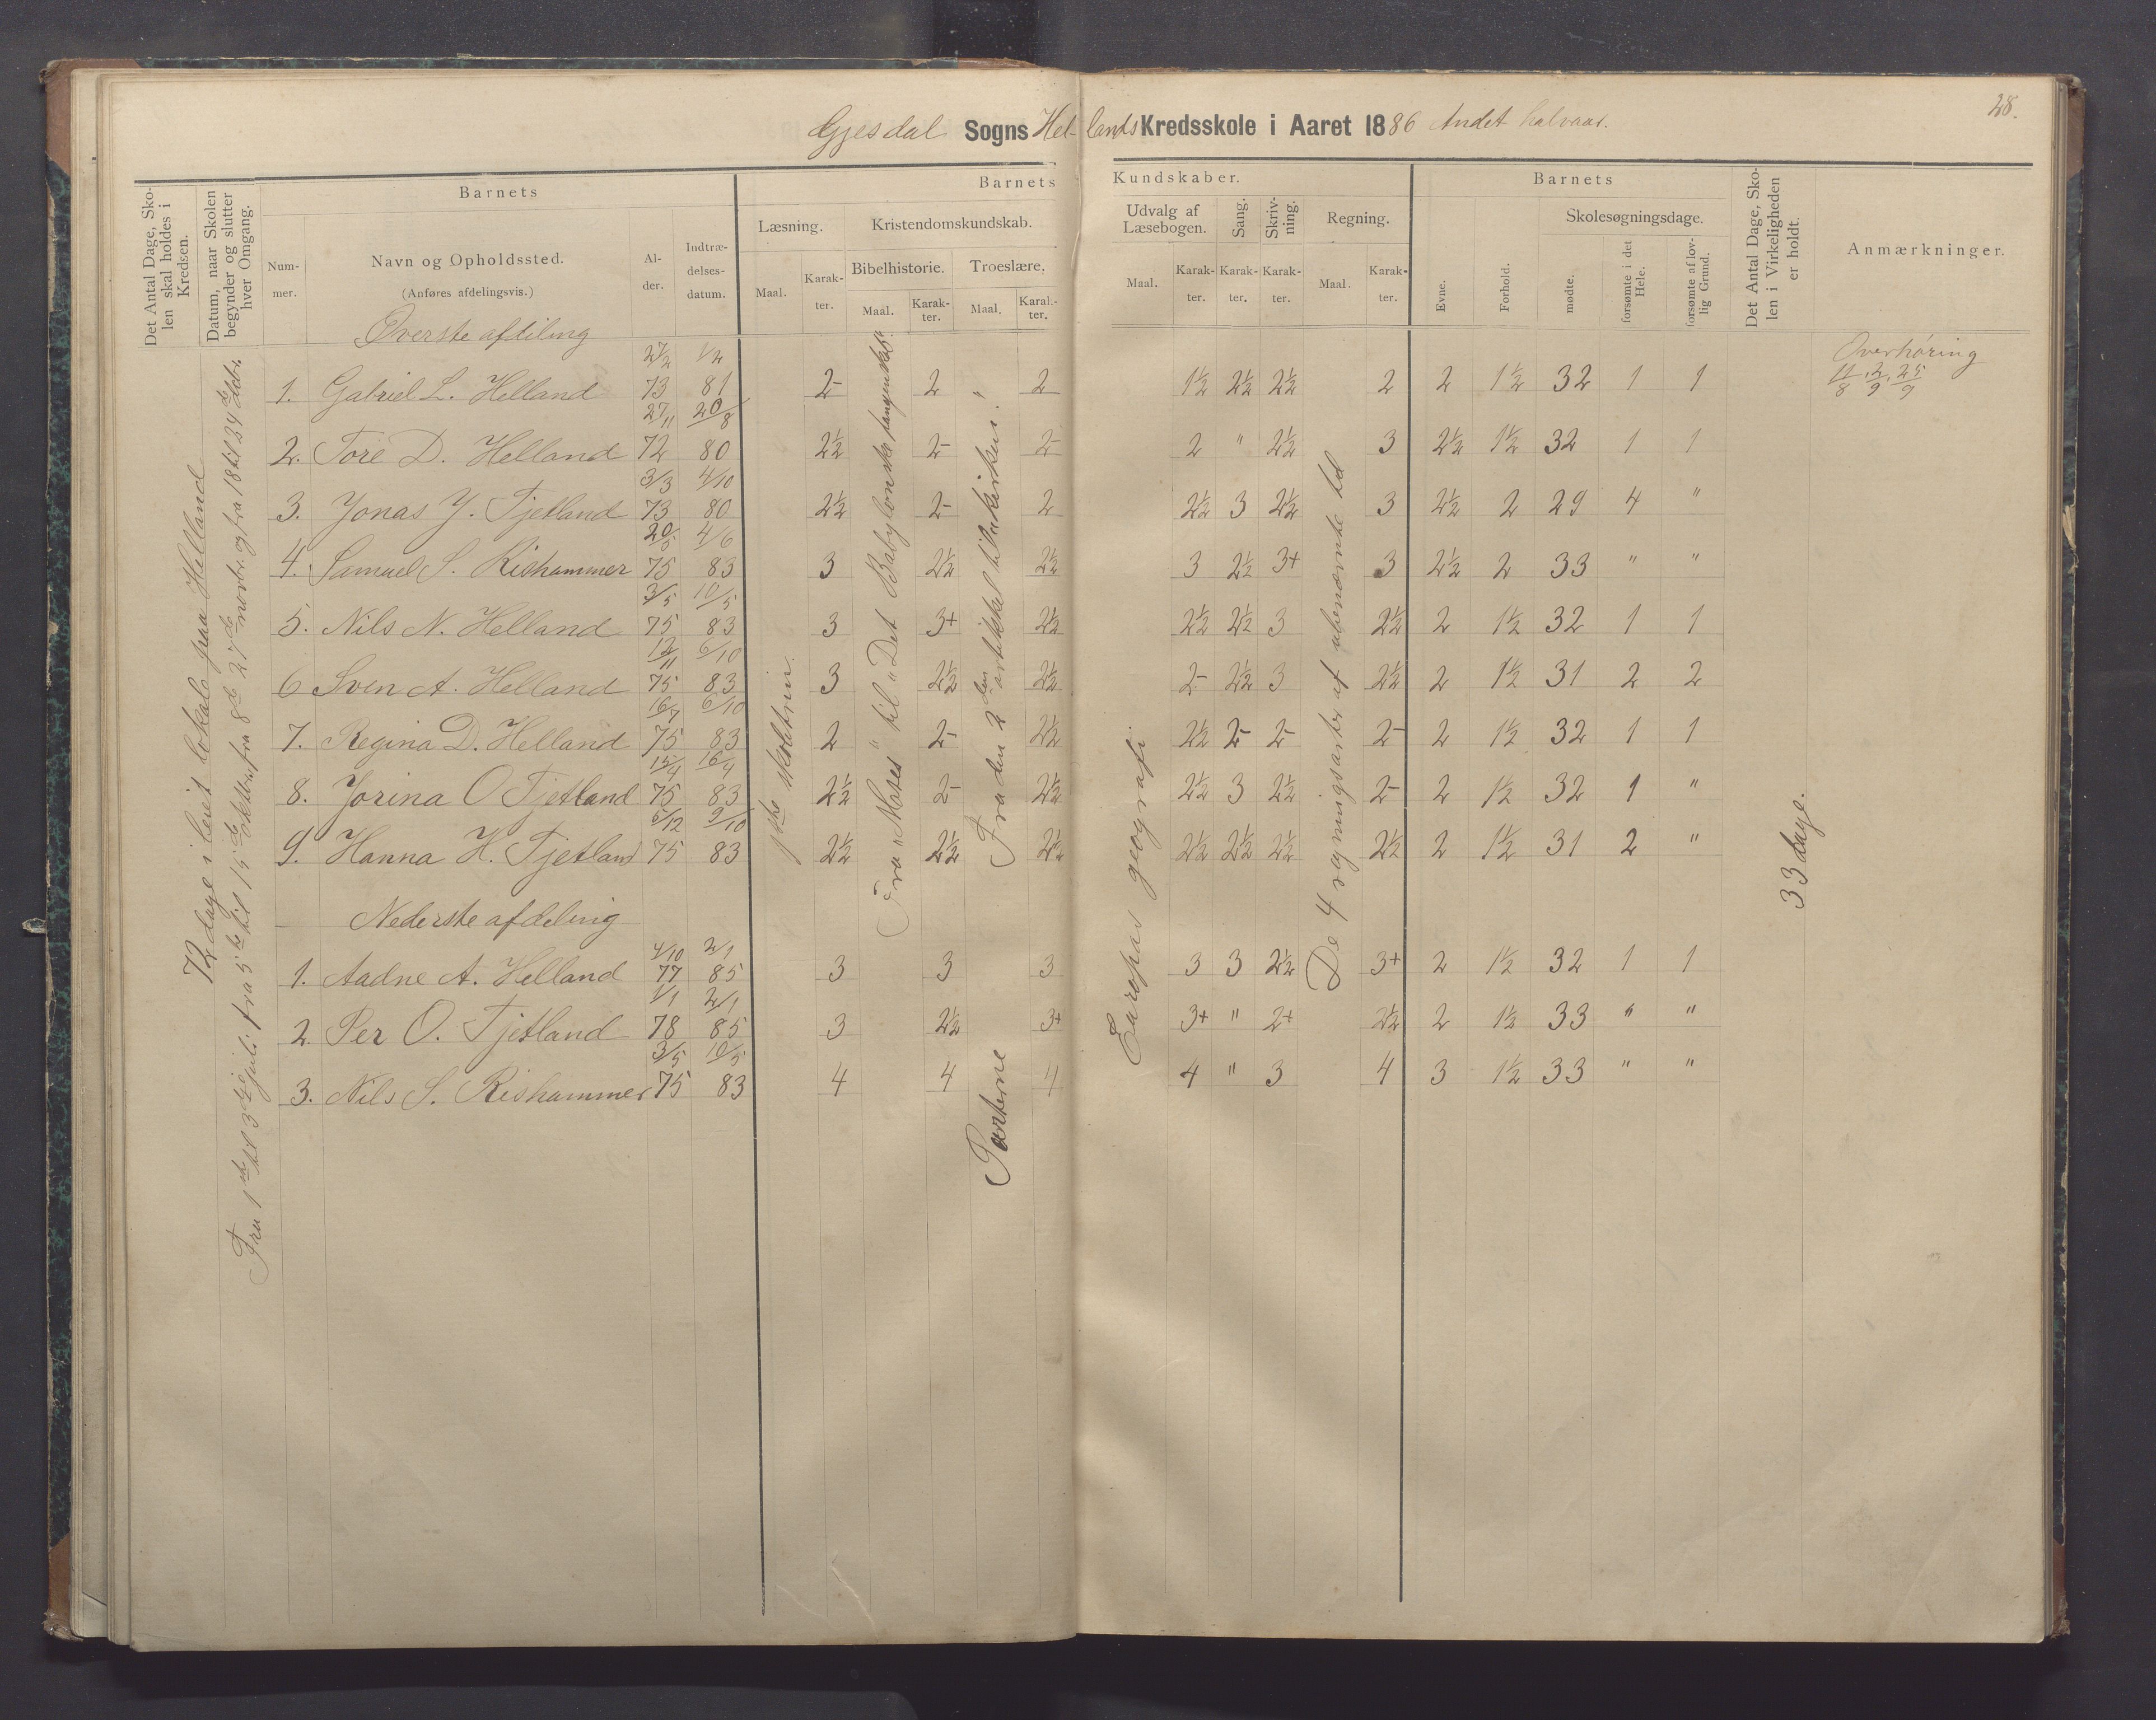 28.
Gjesdal Sogns Hellands Kredsskole i Aaret 1886 Andet halvaar.
Det Antal Dage, Skolen skal holdes i Kredsen.
Datum, naar Skolen begynder og slutter hver Omgang.
Barnets
Nummer.
Navn og Opholdssted.
(Anføres afdelingsvis.)
Alder.
Indtrædelsesdatum.
Barnets Kundskaber.
Læsning.
Maal.
Karakter.
Kristendomskundskab.
Bibelhistorie.
Maal.
Karakter.
Troeslære.
Maal.
Karakter.
Udvalg af Læsebogen.
Maal.
Karakter.
Sang.
Karakter.
Skrivning.
Karakter.
Regning.
Maal.
Karakter.
Barnets
Evne.
Forhold.
Skolesøgningsdage.
mødte.
forsømte i det Hele.
forsømte af lovlig Grund.
Det Antal Dage, Skolen i Virkeligheden er holdt.
Anmærkninger.
72 dage i leiet lokale paa Helland
Øverste afdeling
1. Gabriel L. Helland 27/2 73 1/2 81 2- 2 " 2 1½ 2½ 2½ 2 2 1½ 32 1 1
2. Tore D. Helland 27/11 72 20/8 80 2½ 2- 2- 2 " 2½ 3 2½ 1½ 32 1 1
3. Jonas J. Tjetland 3/3 73 4/10 80 2½ 2- 2 2½ 3 2½ 3 2½ 2 29 4 "
4. Samuel S. Rishammer 20/5 75 4/6 83 3 2½ 2½ 3 2½ 3+ 3 2½ 2 33 " "
5. Nils N. Helland 3/5 75 10/5 83 3 3+ 2½ 2½ 2½ 3 2½ 2 1½ 32 1 1
6 Sven A. Helland 12/11 75 6/10 83 3 2½ 2½ 2- 2½ 3 2½ 2 1½ 31 2 2
7. Regina D. Helland 16/7 75 6/10 83 2 2- 2½ 2½ 2- 2- 2- 2 1½ 32 1 1
8. Jorina O Tjetland 15/4 75 16/4 83 2½ 2- 2½ 2½ 3 2½ 2- 2 1½ 32 1 "
9. Hanna H. Tjetland 6/12 75 9/10 83 2½ 2½ 2½ 2½ 2½ 2½ 2½ 2 1½ 31 2 "
Nederste afdeling
1. Aadne A. Helland 4/10 77 2/1 85 3 3 3 3 3 2½ 3+ 2 1½ 32 1 1
2. Per O. Tjetland 1/1 78 2/1 85 3 2½ 3+ 3+ " 2+ 2½ 2 1½ 33 " "
3. Nils S. Rishammer 3/5 75 10/5 83 4 4 4 4 " 3 4 3 1½ 33 " "
Fra "Moses" til "Det Babylonske fangenskab".
Fra den 2den artikkel til Parterne
Europas geografi
De 4 regningsarter af ubenævnte tal
33 dage.
Overhøring
11/8, 2/9, 25/9